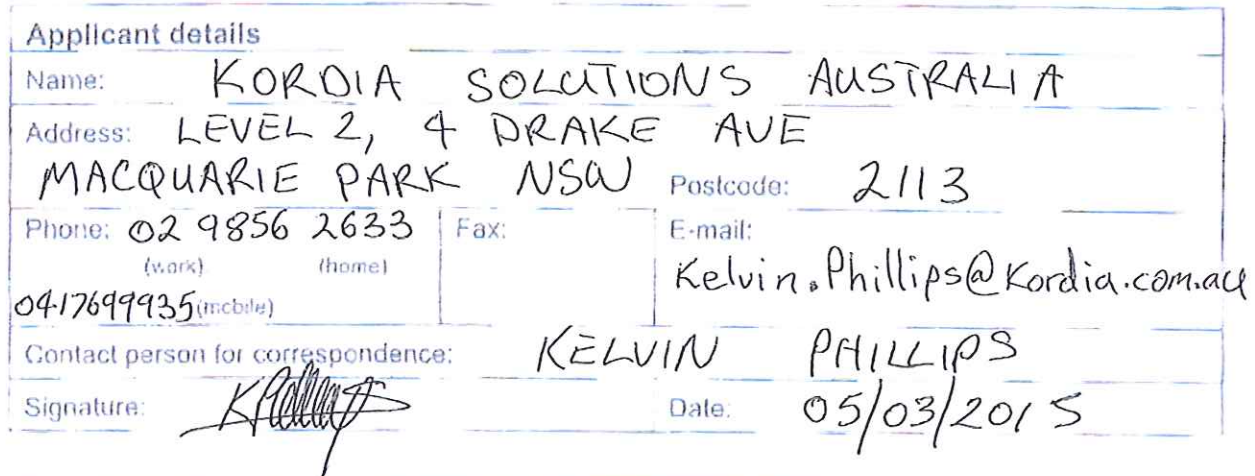 Applicant details
Name: KORDIA SOLUTIONS AUSTRALIA
Address: LEVEL 2, 4 DRAKE AVE
MACQUARIE PARK NSW Postcode: 2113
Phone: 02 9856 2633 Fax: E-mail:
(work) (home) Kelvin.Phillips@Kordia.com.au
0417699935 (mobile)
Contact person for correspondence: KELVIN PHILLIPS
Signature: Date: 05/03/2015